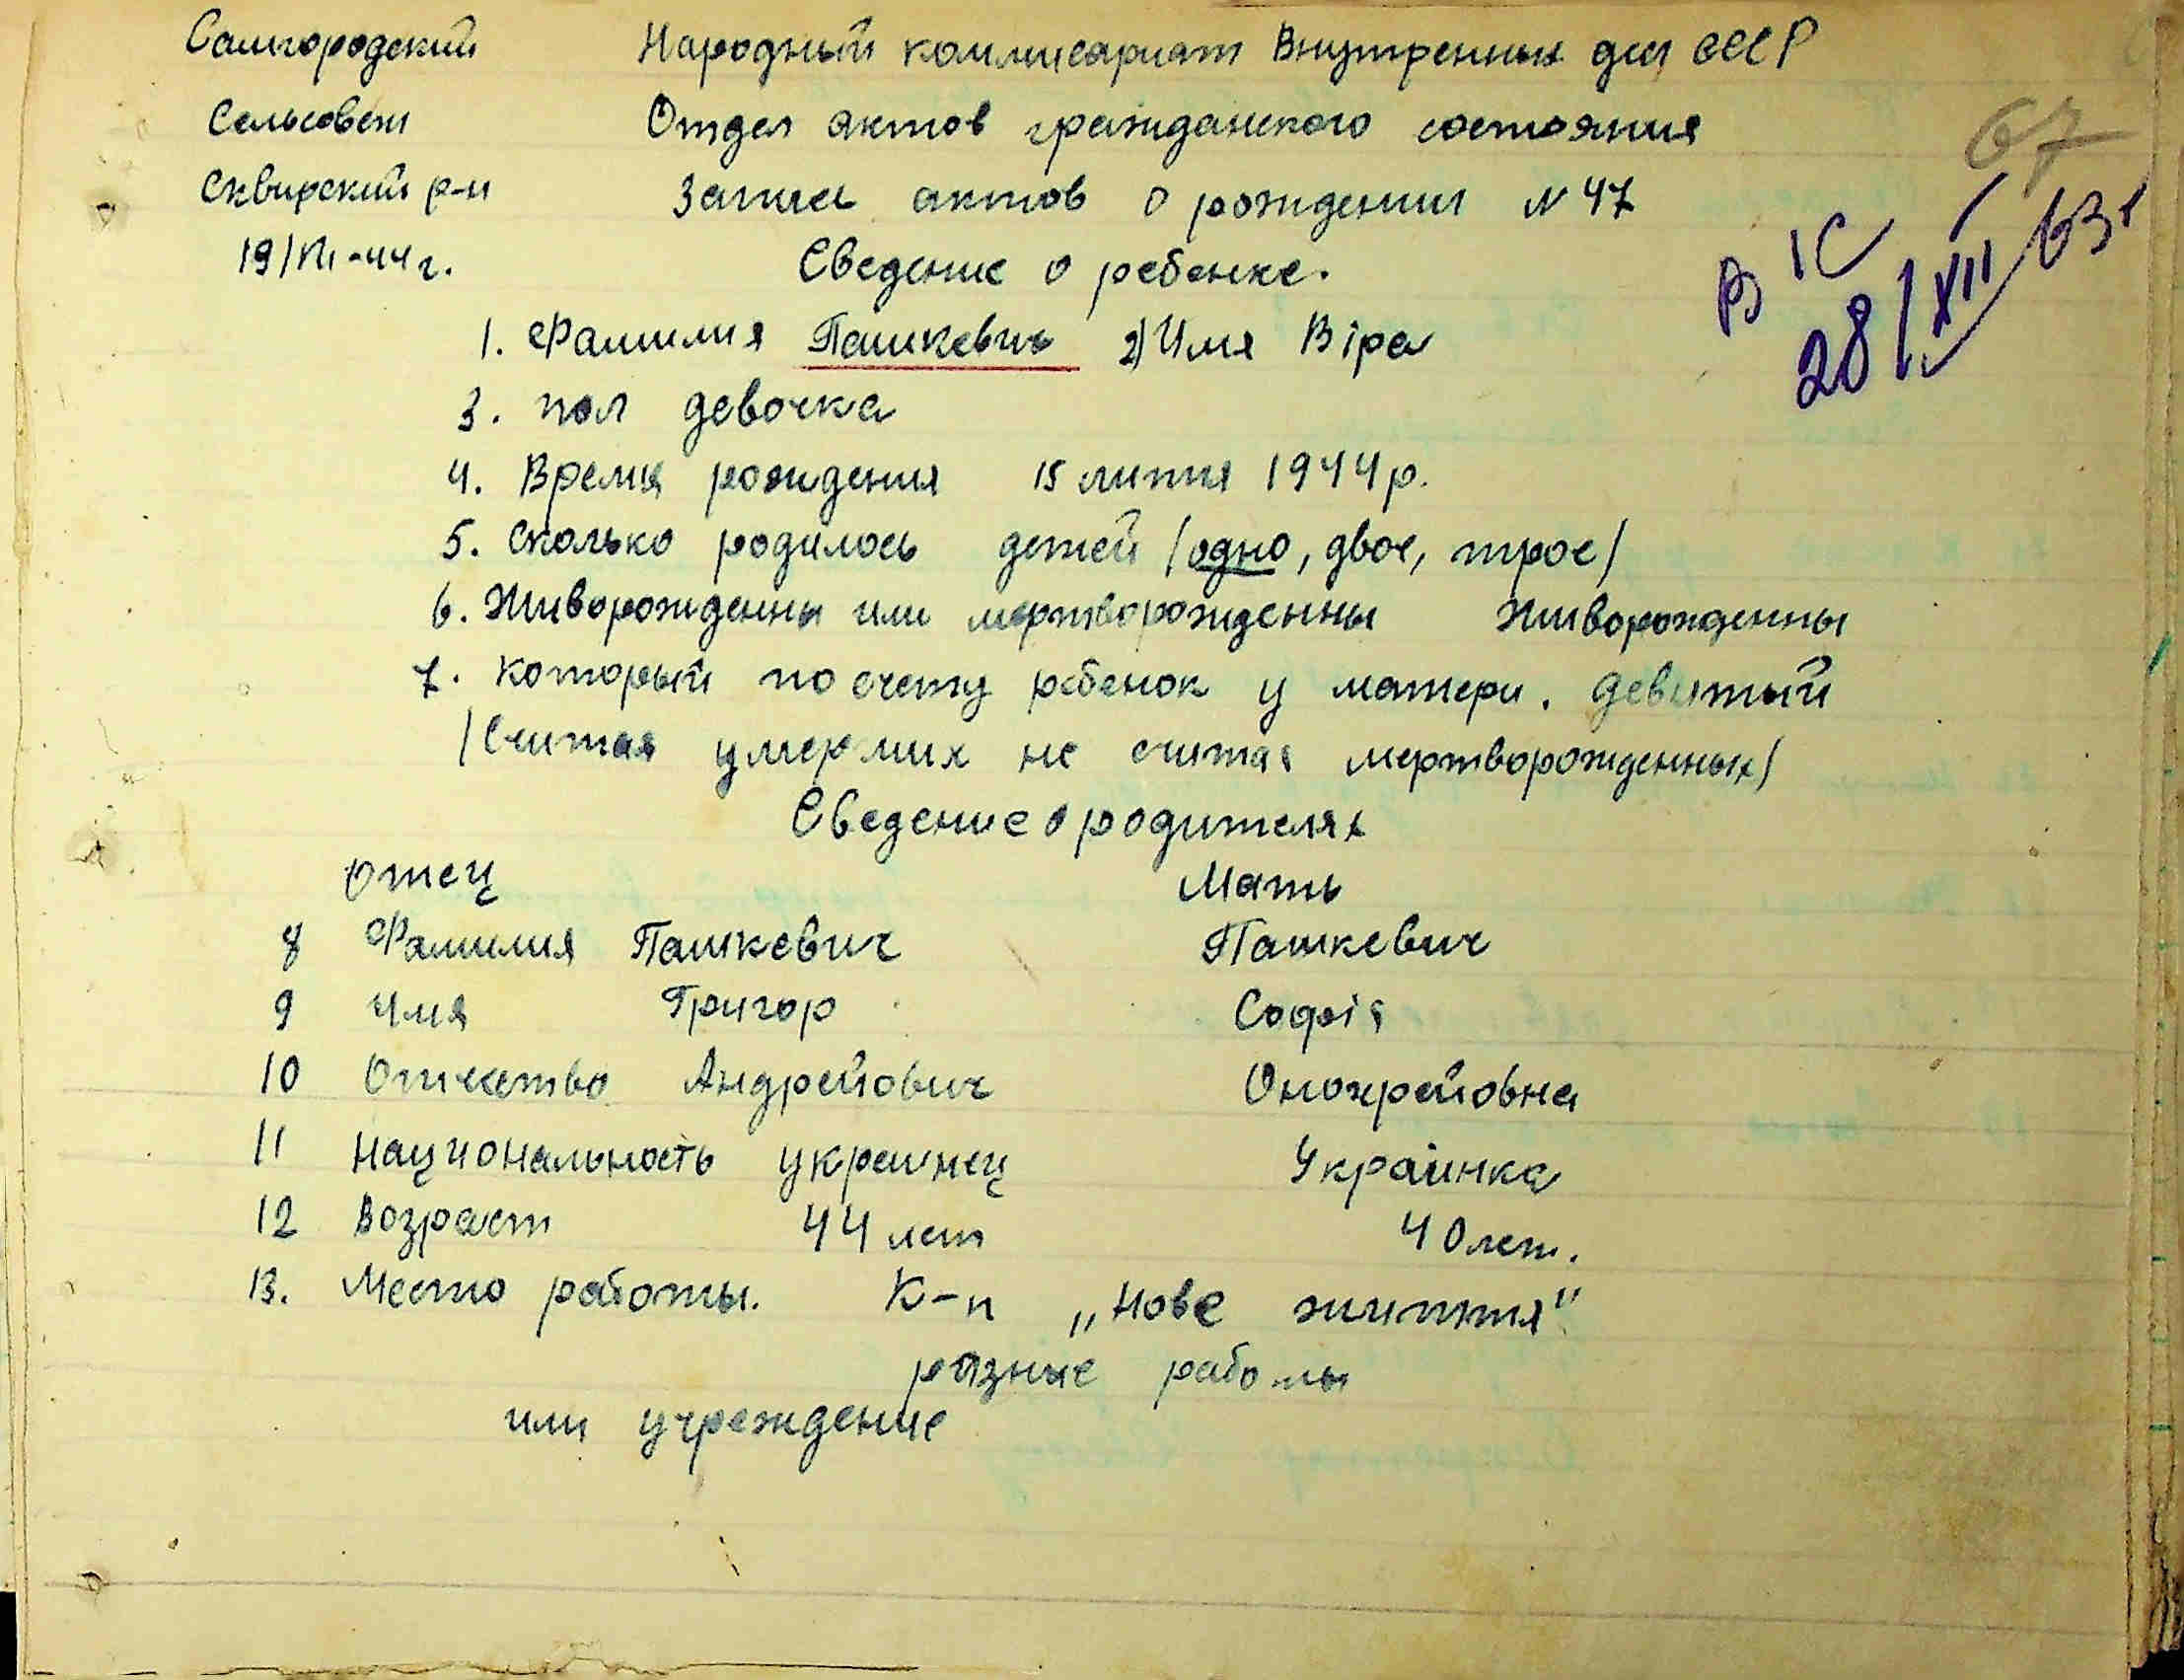 Самгородский Народный коммисариат Внутренных дел СССР
Сельсовет Отдел актов гражданского состояния
67
Сквирский р-н Запись актов о рождении N 47
19/VII-44 г. Сведение о ребенке.
28/XII 63 г
1. Фамилия Пашкевич 2) Имя Віра
3. пол девочка
4. Время рождения 15 липня 1944 р.
5. Сколько родилось детей /одно, двое, трое/
6. Живорожденны или мертворожденны Живорожденны
7. Который по счету ребенок у матери. девятый
/Считая умерших не считая мертворожденных/
Сведение о родителях
Отец Мать
8 Фамилия Пашкевич Пашкевич
9 Имя Григор Софія
10 Отчество Андрейович Онохрейовна
11 Национальность украинец Украинка
12 Возраст 44 лет 40 лет.
13. Место работы. К-п „Нове життя"
разные работы
или учреждение